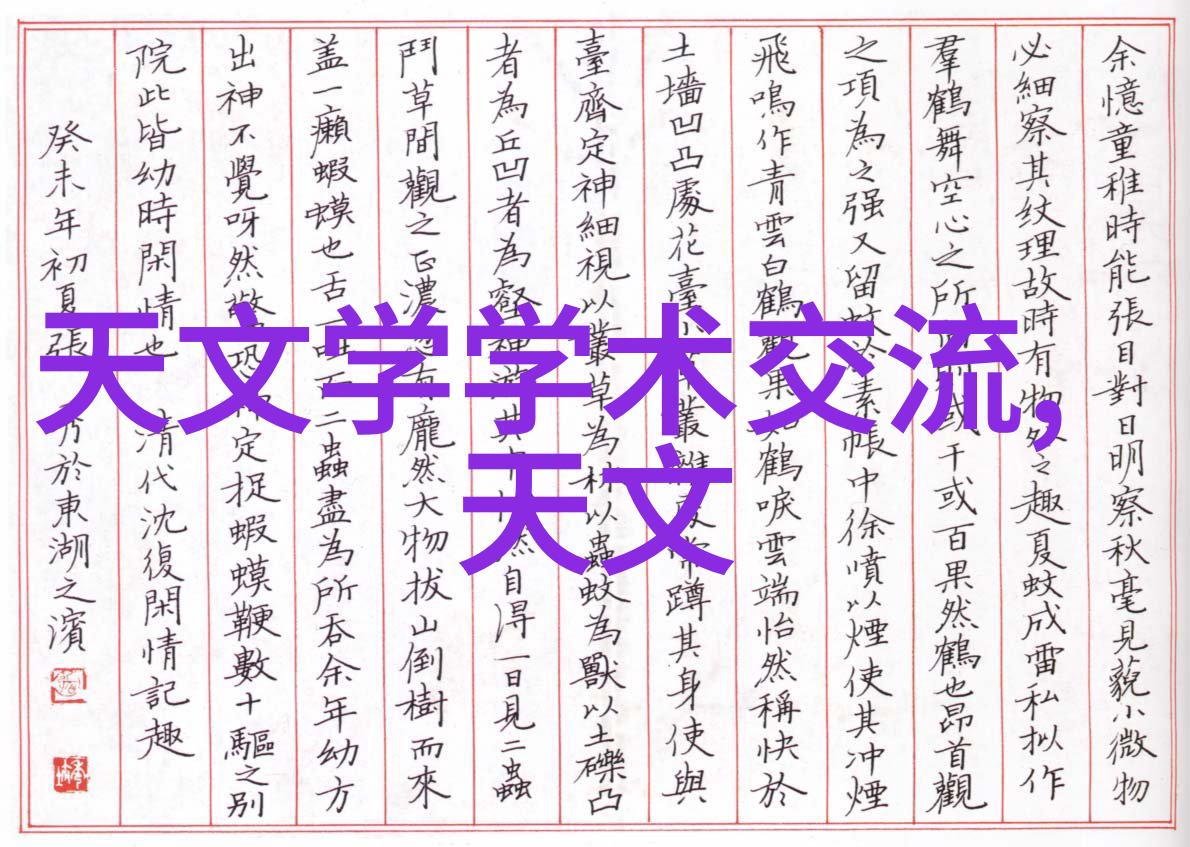 余憶童稚時能張目對日明察秋毫見藐小微物
必細察其紋理故時有物外之趣夏蚊成雷私拟作
羣鶴舞空心之所或千或百果然鶴也昂首觀
之項為之强又留蚊於素帳中徐噴以煙使其冲煙
飛鳴作青雲白鶴觀果如鶴唳雲端怡然稱快於
土墻凹凸處花臺小草叢雜處常蹲其身使與
臺齊定神細視以叢草為林以蟲蚊為獸以土礫凸
者為丘凹者為壑神遊其中怡然自得一日見二蟲
鬥草間觀之正濃忽有龐然大物拔山倒樹而來
盖一癩蝦蟆也舌一吐而二蟲盡為所吞余年幼方
出神不覺呀然驚恐神定捉蝦蟆鞭數十驅之別
院此皆幼時閑情也 清代沈復閑情記趣
癸未年初夏張乃於東湖之濱
天文学学术交流,
天文